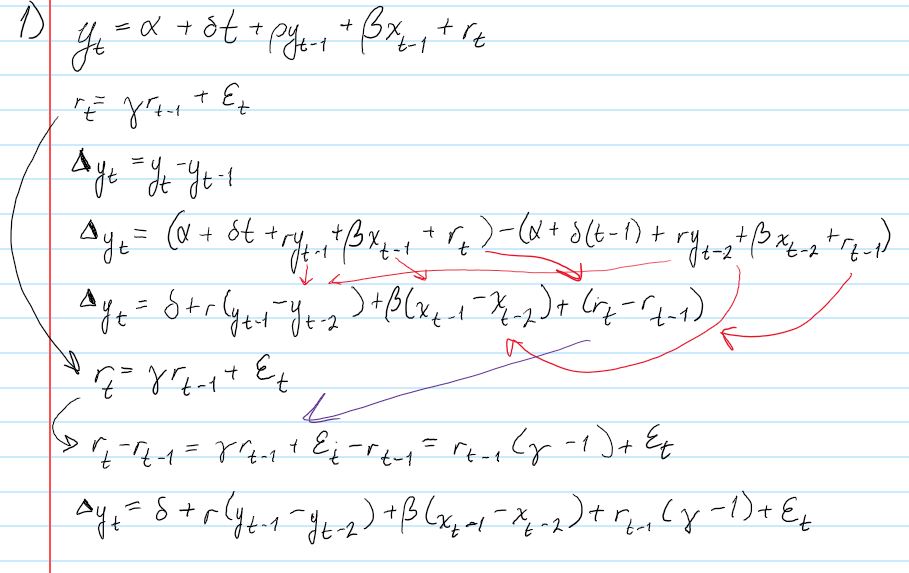 1) y_t = α + δt + ρy_{t-1} + βx_{t-1} + r_t
r_t = γr_{t-1} + ε_t
Δy_t = y_t - y_{t-1}
Δy_t = (α + δt + ry_{t-1} + βx_{t-1} + r_t) - (α + δ(t-1) + ry_{t-2} + βx_{t-2} + r_{t-1})
Δy_t = δ + r(y_{t-1} - y_{t-2}) + β(x_{t-1} - x_{t-2}) + (r_t - r_{t-1})
r_t = γr_{t-1} + ε_t
r_t - r_{t-1} = γr_{t-1} + ε_t - r_{t-1} = r_{t-1}(γ - 1) + ε_t
Δy_t = δ + r(y_{t-1} - y_{t-2}) + β(x_{t-1} - x_{t-2}) + r_{t-1}(γ - 1) + ε_t